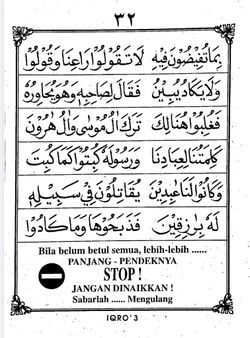 ٣٢
بِمَا تُفِيْضُوْنَ فِيْهِ لَا تَقُوْلُوْا رَاعِنَا وَقُوْلُوا
وَلَا يَكَادُ يُبِيْنُ فَقَالَ لِصَاحِبِهٖ وَهُوَ يُحَاوِرُهٗ
فَغُلِبُوْا هُنَالِكَ تَرَكَ اٰلُ مُوْسٰى وَاٰلُ هٰرُوْنَ
كَلِمَتُنَا لِعِبَادِنَا وَرَسُوْلَهٗ كُبِتُوْا كَمَا كُبِتَ
وَكَانُوْا لَنَا عٰبِدِيْنَ يُقَاتِلُوْنَ فِيْ سَبِيْلِهٖ
لَهٗ بِرٰزِقِيْنَ فَذَبَحُوْهَا وَمَا كَادُوْا
Bila belum betul semua, lebih-lebih ......
PANJANG - PENDEKNYA
STOP !
JANGAN DINAIKKAN !
Sabarlah ...... Mengulang
IQRO' 3